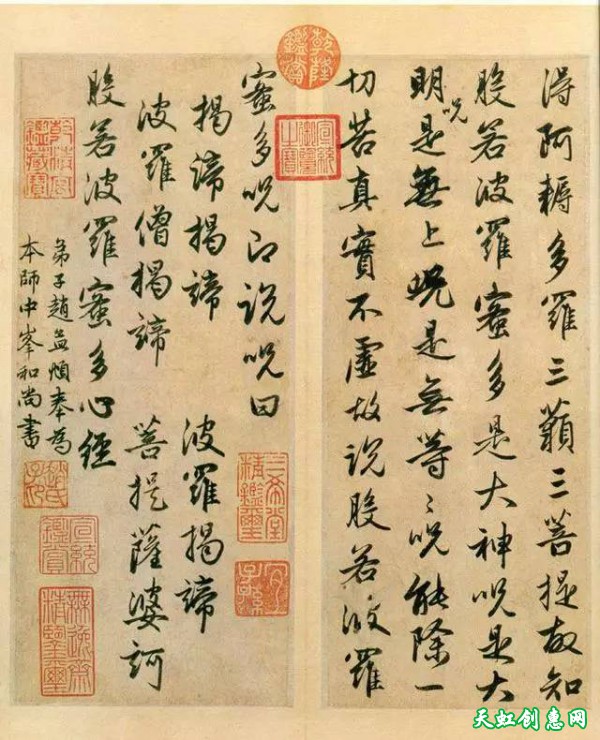 得阿耨多羅三藐三菩提故知
般若波羅蜜多是大神呪是大
明呪是無上呪是無等〻呪能除一
切苦真實不虛故說般若波羅
蜜多呪即說呪曰
揭諦揭諦 波羅揭諦
波羅僧揭諦 菩提薩婆訶
般若波羅蜜多心經
弟子趙孟頫奉為
本師中峯和尚書
乾隆鑑賞
宣統御覽之寶
三希堂精鑑璽
宜子孫
乾清宮鑑藏寶
趙氏子昂
宣統鑑賞
無逸齋精鑒璽
天虹创惠网